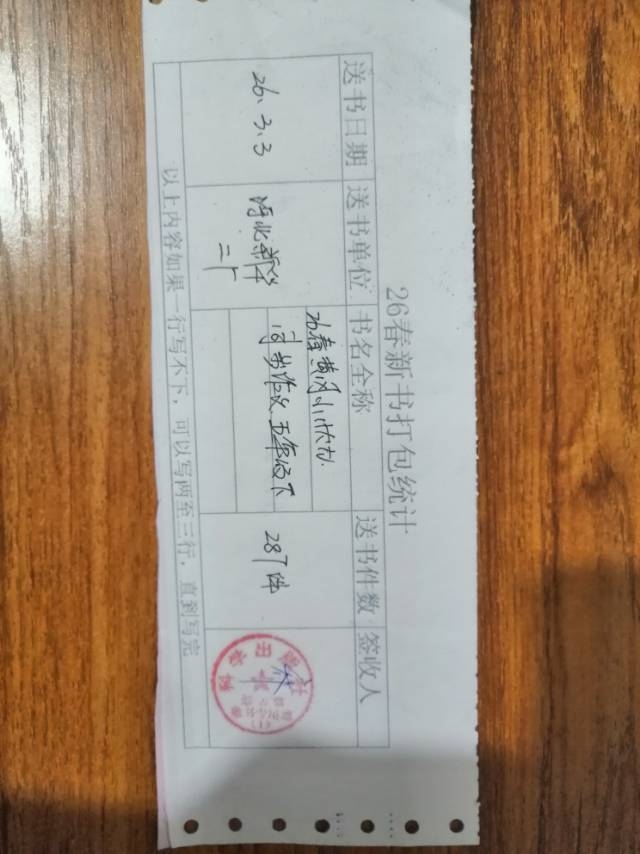 26春新书打包统计
送书日期 送书单位 书名全称 送书件数 签收人
26.3.3 河北新华二厂 26春黄冈小状元 287件
同步作文五年级下
以上内容如果一行写不下，可以写两至三行，直到写完